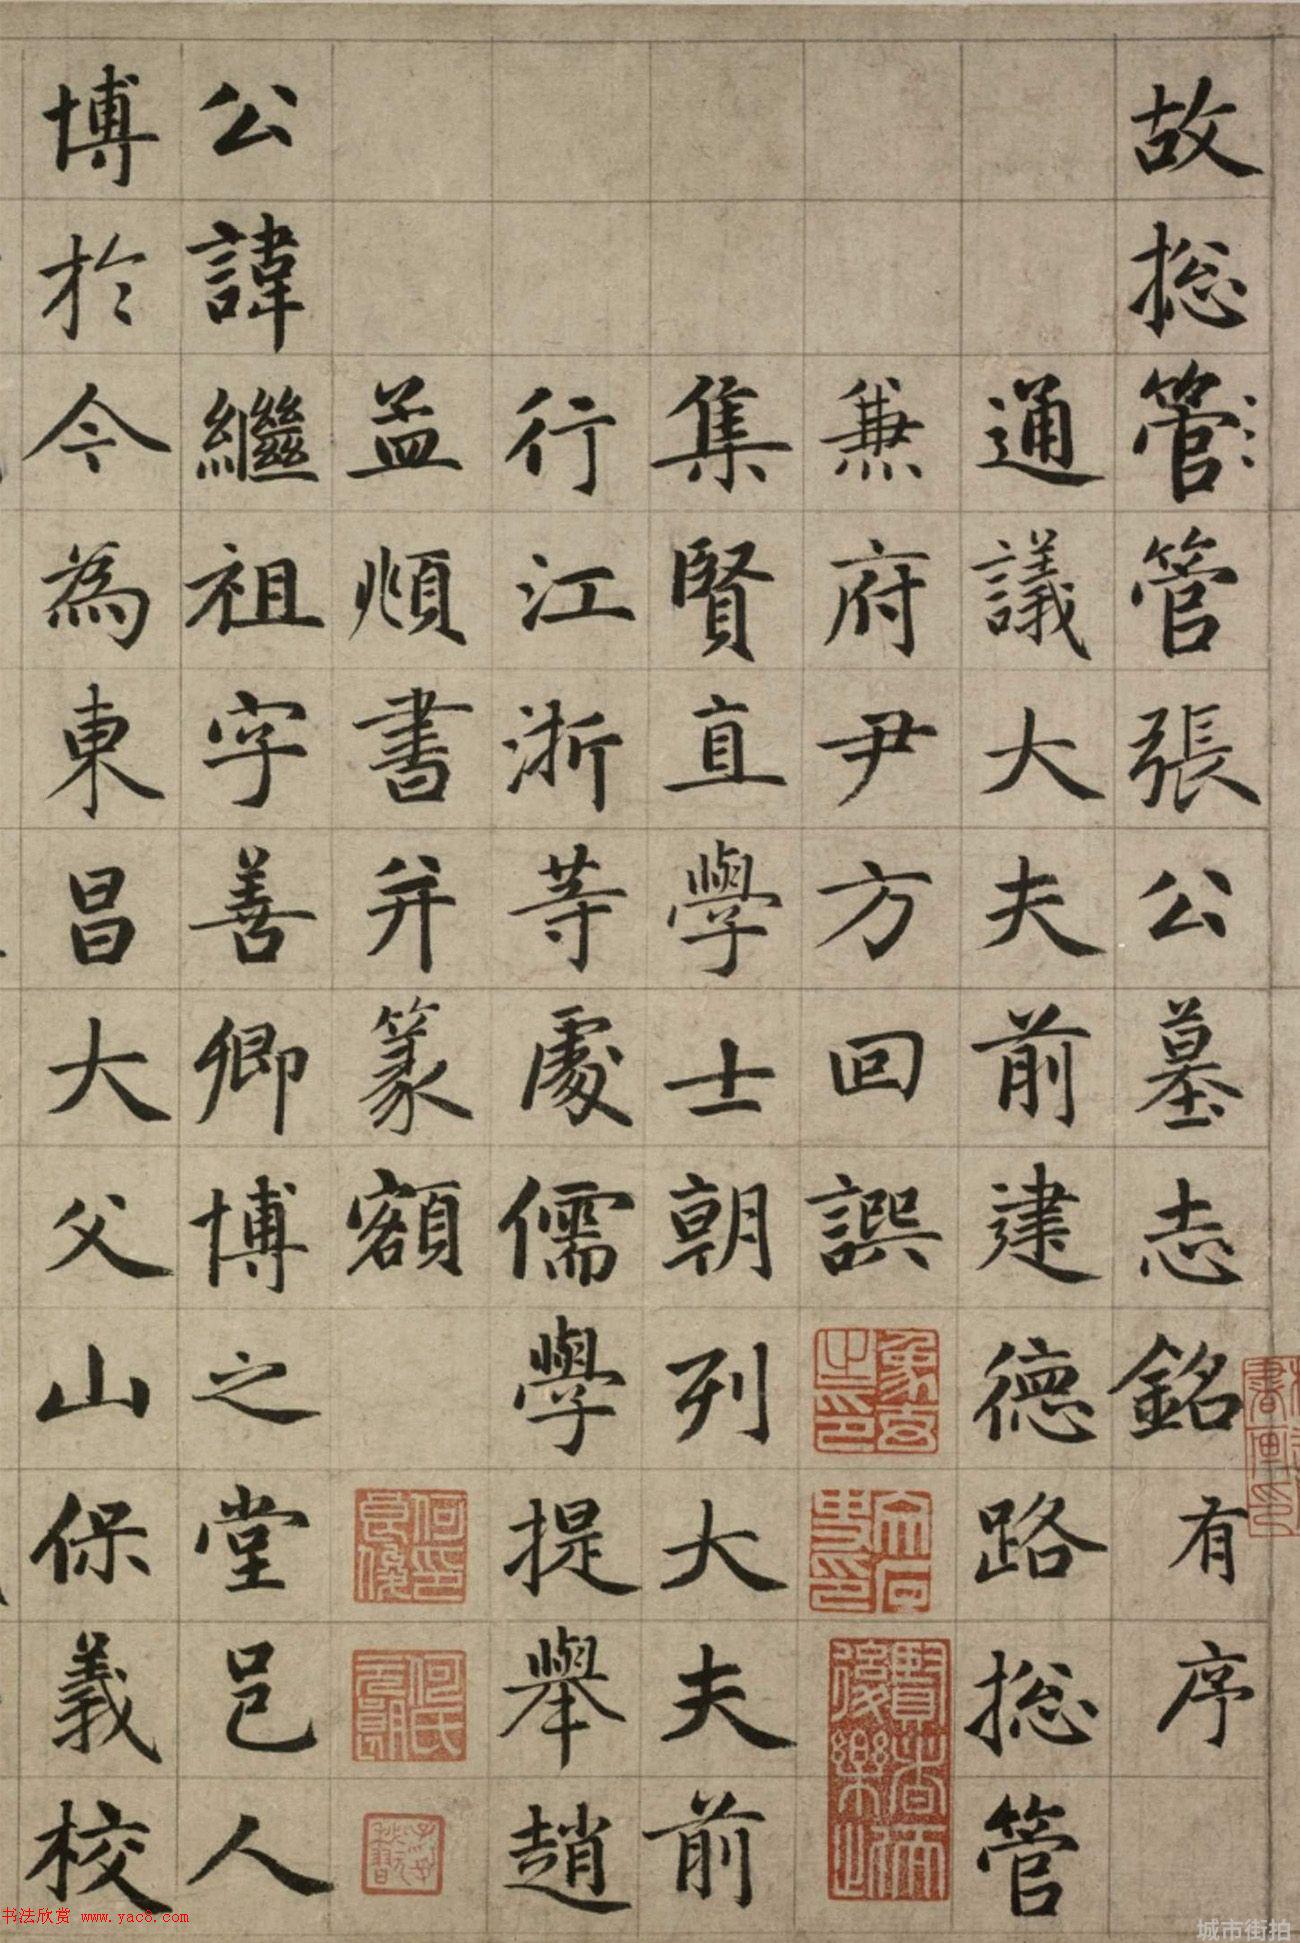 故総管管張公墓志銘有序
通議大夫前建德路総管
兼府尹方回譔
集賢直學士朝列大夫前
行江浙等處儒學提舉趙
孟頫書并篆額
公諱繼祖字善卿博之堂邑人
博於今為東昌大父山保義校
何氏元朗
书法欣赏 www.yac8.com
城市街拍